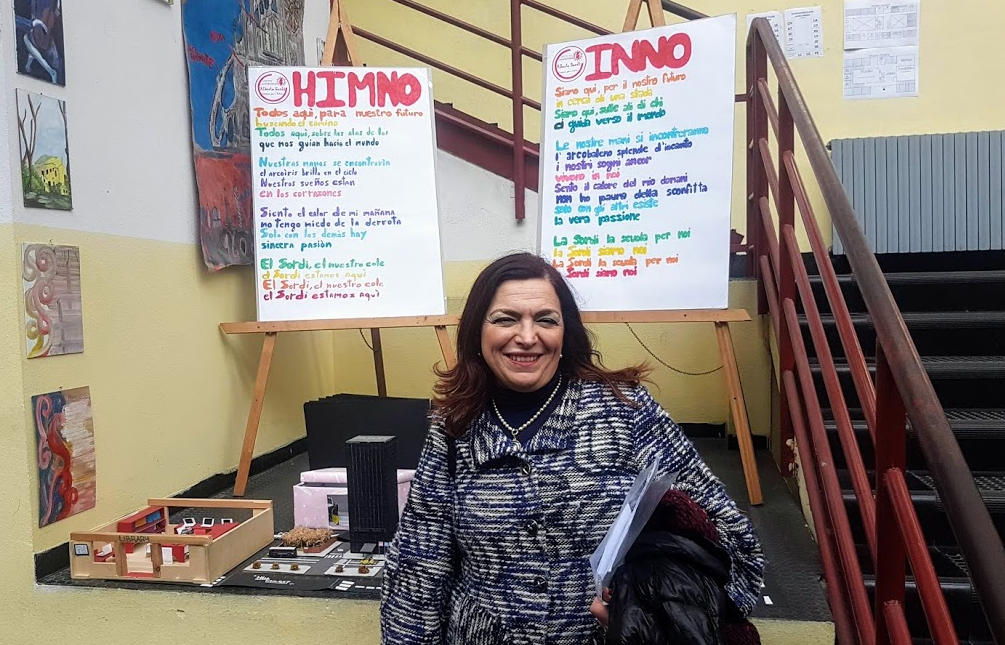 Alberto Sordi
HIMNO
Todos aquì, para nuestro futuro
buscando el camino
Todos aquì, sobre las alas de los
que nos guian hacia el mundo
Nuestras manos se encontraràn
el arcoìris brilla en el cielo
Nuestros sueños estàn
en los corrazones
Siento el calor de mi mañana
no tengo miedo de la derrota
Solo con los demàs hay
sincera pasiòn
El Sordi, el nuestro cole
el Sordi estamos aquì
El Sordi, el nuestro cole
el Sordi estamos aquì
Alberto Sordi
INNO
Siamo qui, per il nostro futuro
in cerca di una strada
Siamo qui, sulle ali di chi
ci guida verso il mondo
Le nostre mani si incontreranno
l'arcobaleno splende d'incanto
i nostri sogni ancor
vivono in noi
Sento il calore del mio domani
non ho paura della sconfitta
Solo con gli altri esiste
la vera passione
La Sordi la scuola per noi
la Sordi siamo noi
La Sordi la scuola per noi
la Sordi siamo noi
LIBRARY